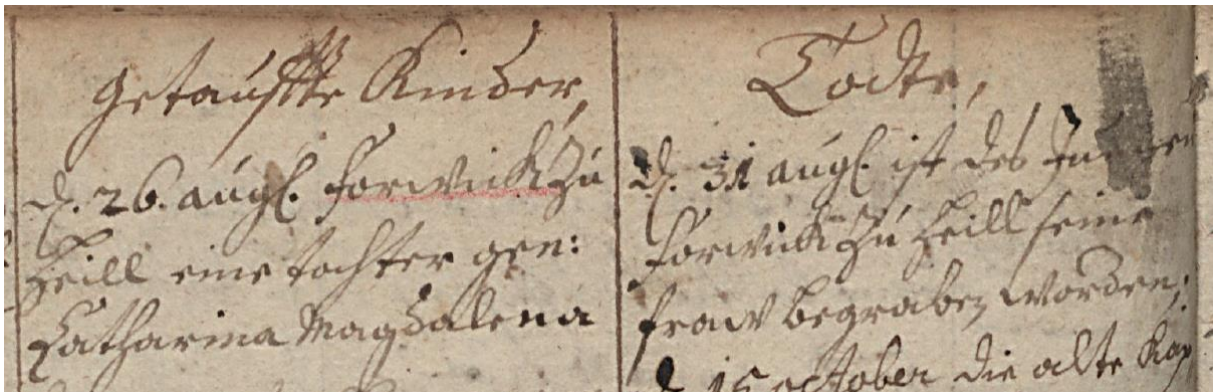 Getauffte Kinder,
d. 26. augs. Forwick zu
Heill eine tochter gen:
Catharina Magdalena
Todte,
d. 31 augs. ist des
Forwick zu Heill seine
fraw begraben worden;
d 15 october die alte